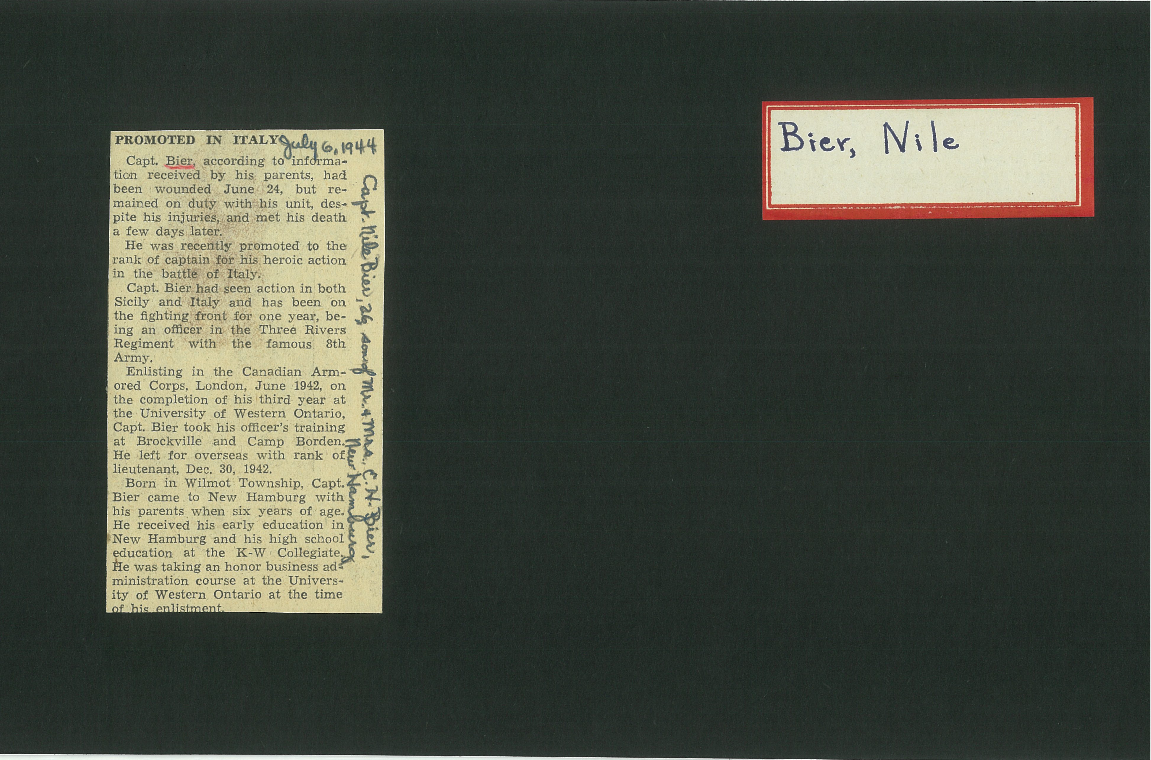 PROMOTED IN ITALY
July 6, 1944
Capt. Bier, according to informa-
tion received by his parents, had
been wounded June 24, but re-
mained on duty with his unit, des-
pite his injuries, and met his death
a few days later.
He was recently promoted to the
rank of captain for his heroic action
in the battle of Italy.
Capt. Bier had seen action in both
Sicily and Italy and has been on
the fighting front for one year, be-
ing an officer in the Three Rivers
Regiment with the famous 8th
Army.
Enlisting in the Canadian Arm-
ored Corps, London, June 1942, on
the completion of his third year at
the University of Western Ontario,
Capt. Bier took his officer's training
at Brockville and Camp Borden.
He left for overseas with rank of
lieutenant, Dec. 30, 1942.
Born in Wilmot Township, Capt.
Bier came to New Hamburg with
his parents when six years of age.
He received his early education in
New Hamburg and his high school
education at the K-W Collegiate.
He was taking an honor business ad-
ministration course at the Univers-
ity of Western Ontario at the time
of his enlistment.
Capt. Nile Bier, 26, son of Mr. & Mrs. C. H. Bier,
New Hamburg
Bier, Nile